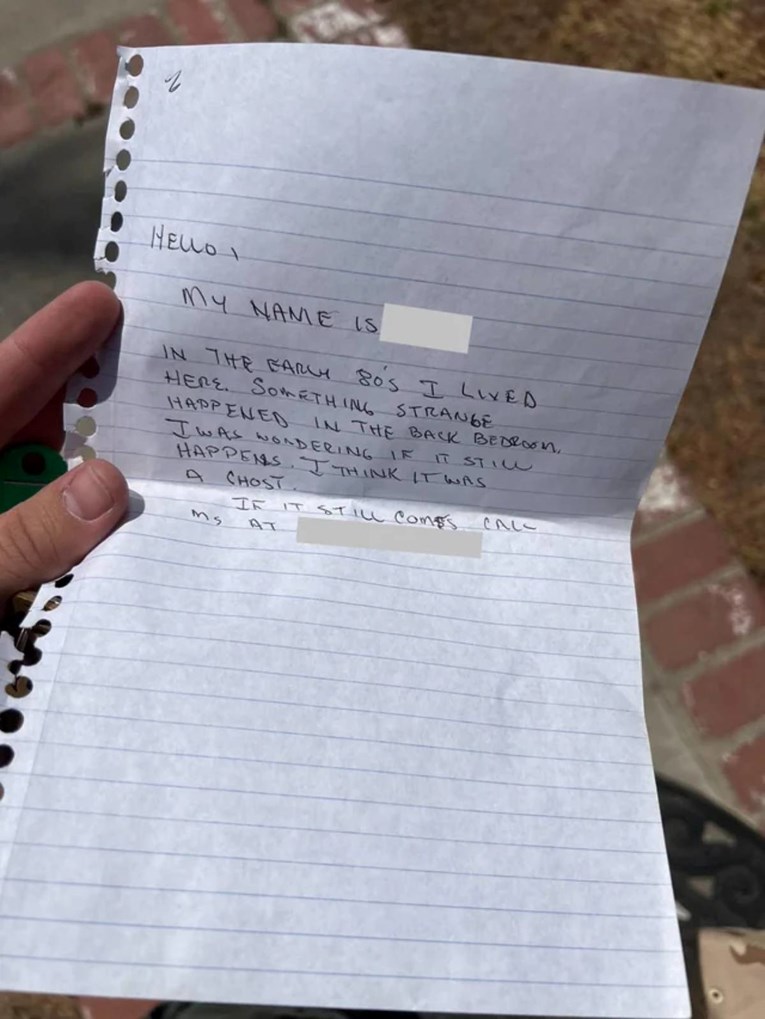 HELLO,
MY NAME IS
IN THE EARLY 80'S I LIVED
HERE. SOMETHING STRANGE
HAPPENED IN THE BACK BEDROOM.
I WAS WONDERING IF IT STILL
HAPPENS. I THINK IT WAS
A GHOST.
IF IT STILL COMES CALL
ME AT